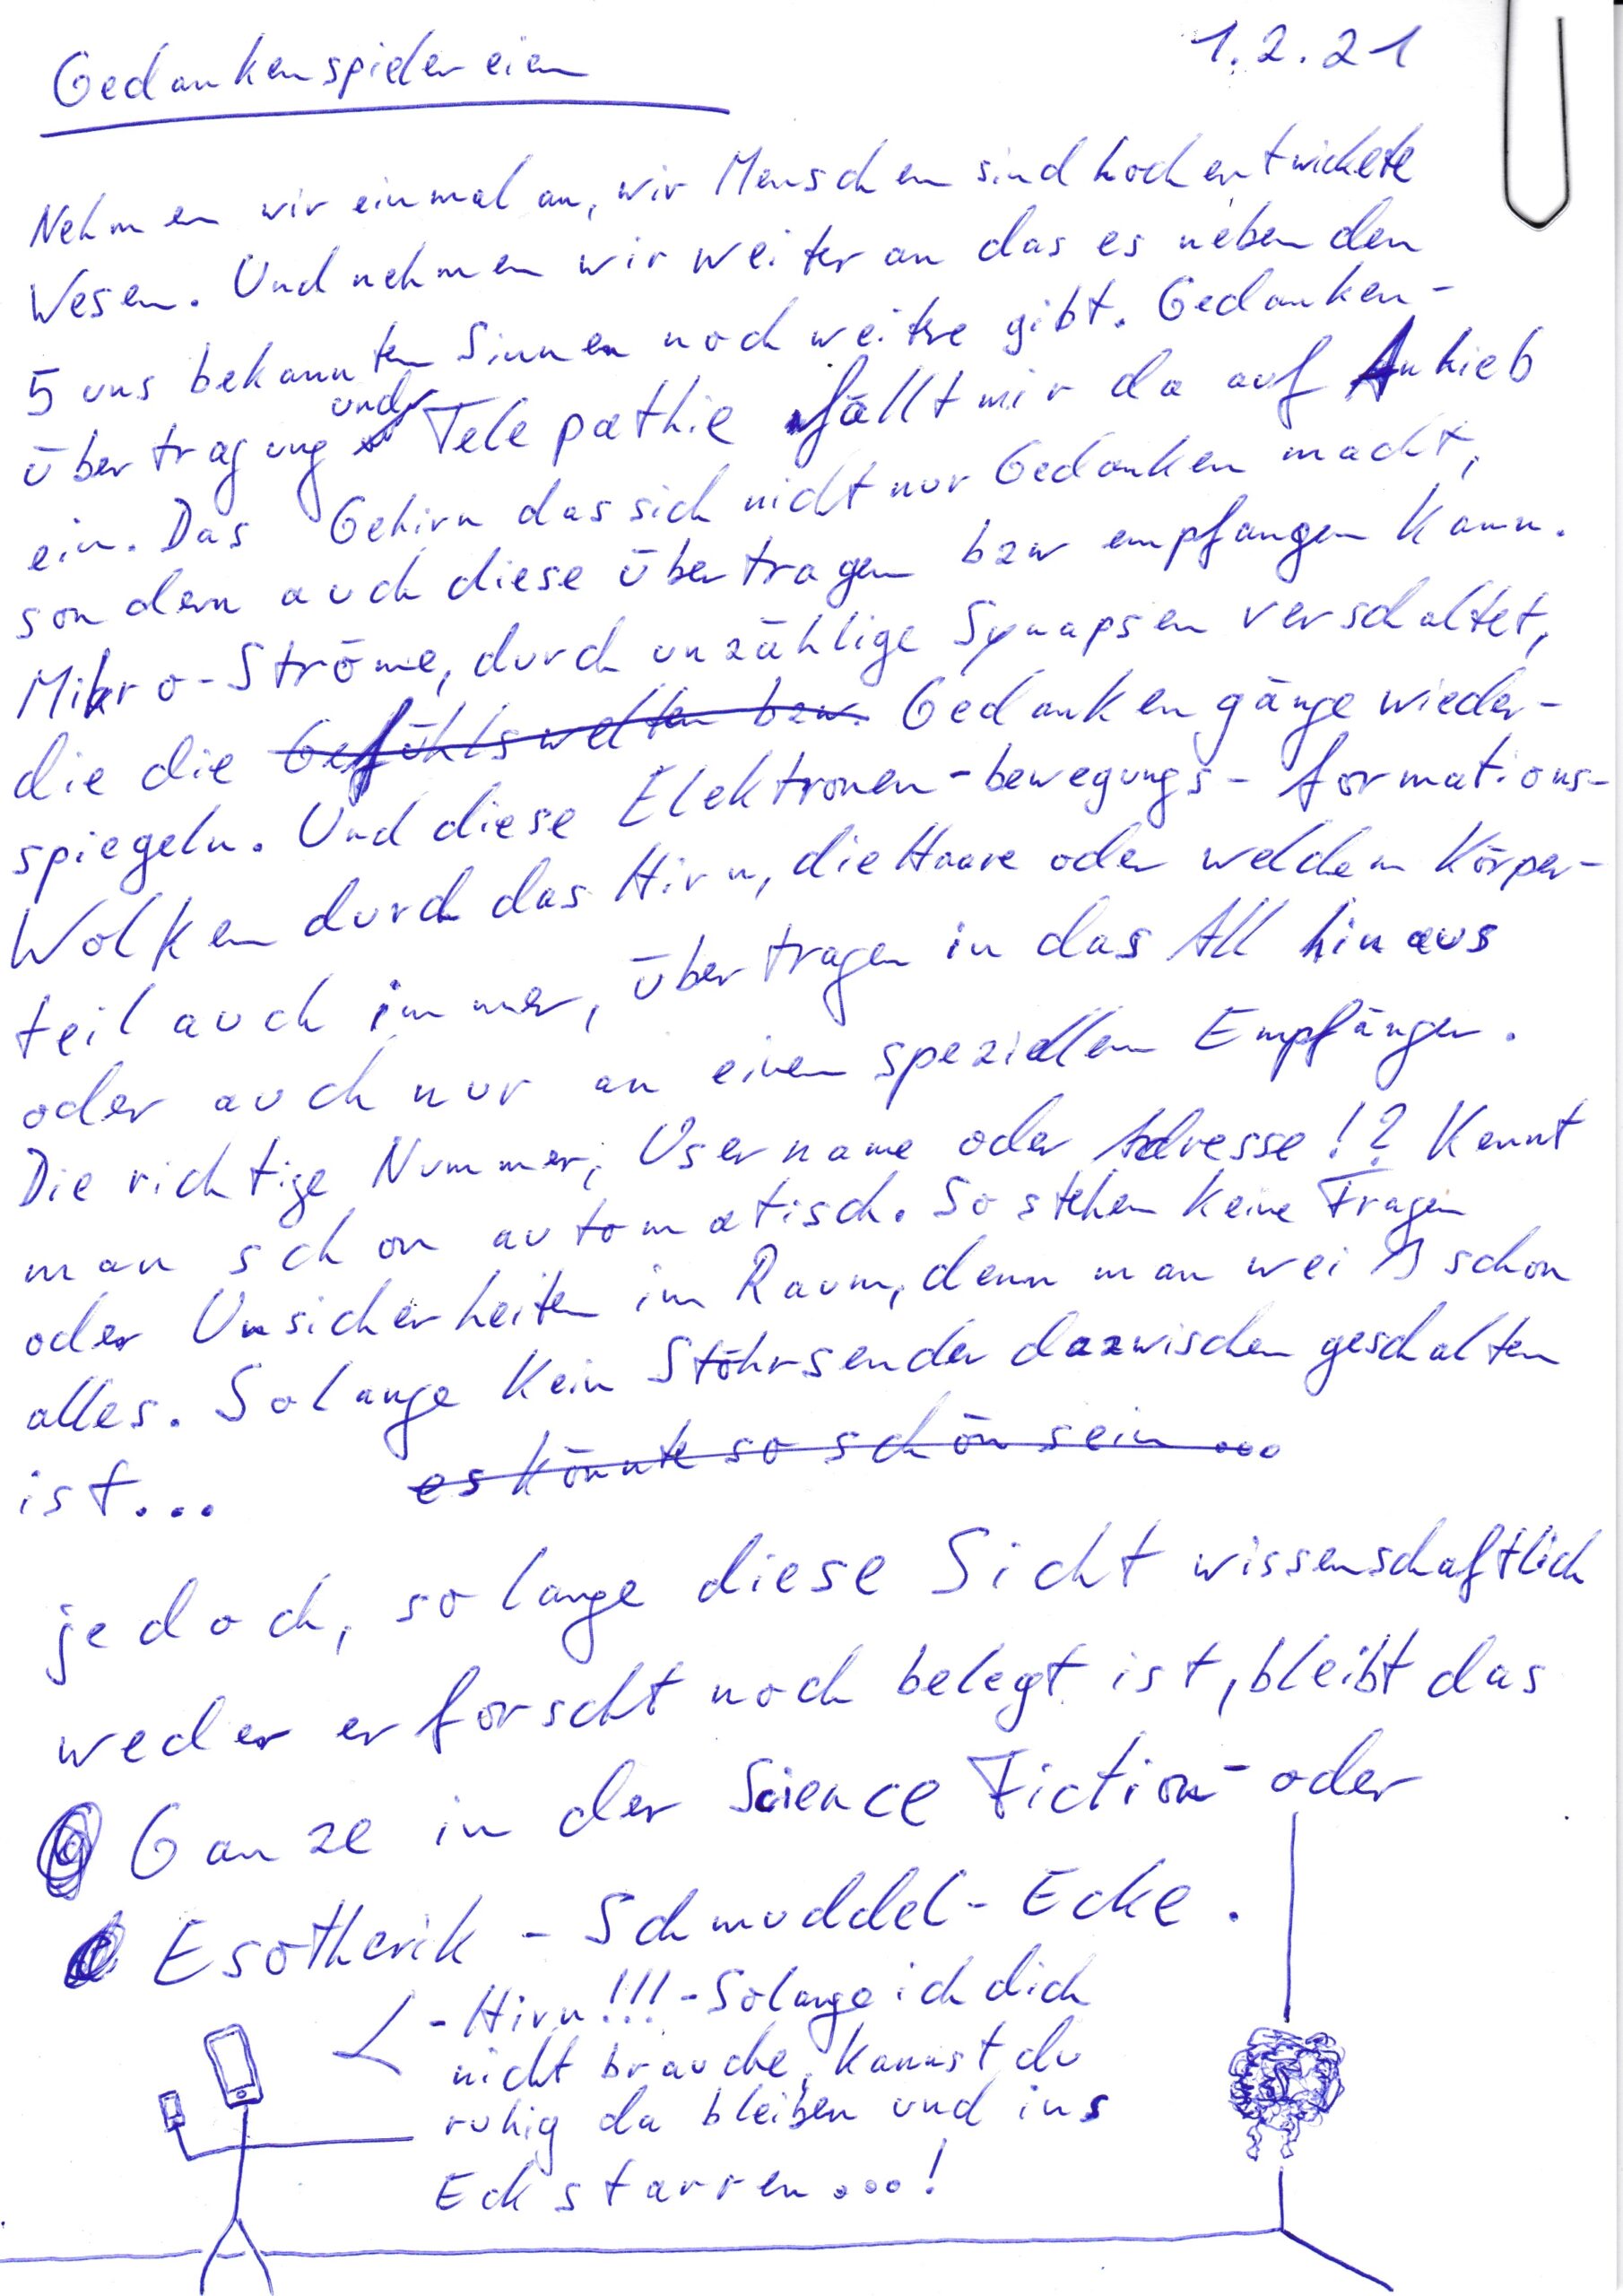 Gedankenspielereien 1.2.21
Nehmen wir einmal an, wir Menschen sind hoch entwickelte
Wesen. Und nehmen wir weiter an das es neben den
5 uns bekannten Sinnen noch weitre gibt. Gedanken-
übertragung und Telepathie fällt mir da auf Anhieb
ein. Das Gehirn das sich nicht nur Gedanken macht,
sondern auch diese übertragen bzw empfangen kann.
Mikro-Ströme, durch unzählige Synapsen verschaltet,
die die Gefühlswelten bzw. Gedankengänge wieder-
spiegeln. Und diese Elektronen-bewegungs-formations-
Wolken durch das Hirn, die Haare oder welchem Körper-
teil auch immer, übertragen in das All hinaus
oder auch nur an einen speziellen Empfänger.
Die richtige Nummer, Username oder Adresse!? Kennt
man schon automatisch. So stehen keine Fragen
oder Unsicherheiten im Raum, denn man weiß schon
alles. Solange kein Stöhrsender dazwischen geschalten
ist... es könnte so schön sein...
jedoch, solange diese Sicht wissenschaftlich
weder erforscht noch belegt ist, bleibt das
Ganze in der Science Fiction- oder
Esotherik-Schmuddel-Ecke.
-Hirn!!! -Solange ich dich
nicht brauche, kannst du
ruhig da bleiben und ins
Eck starren...!